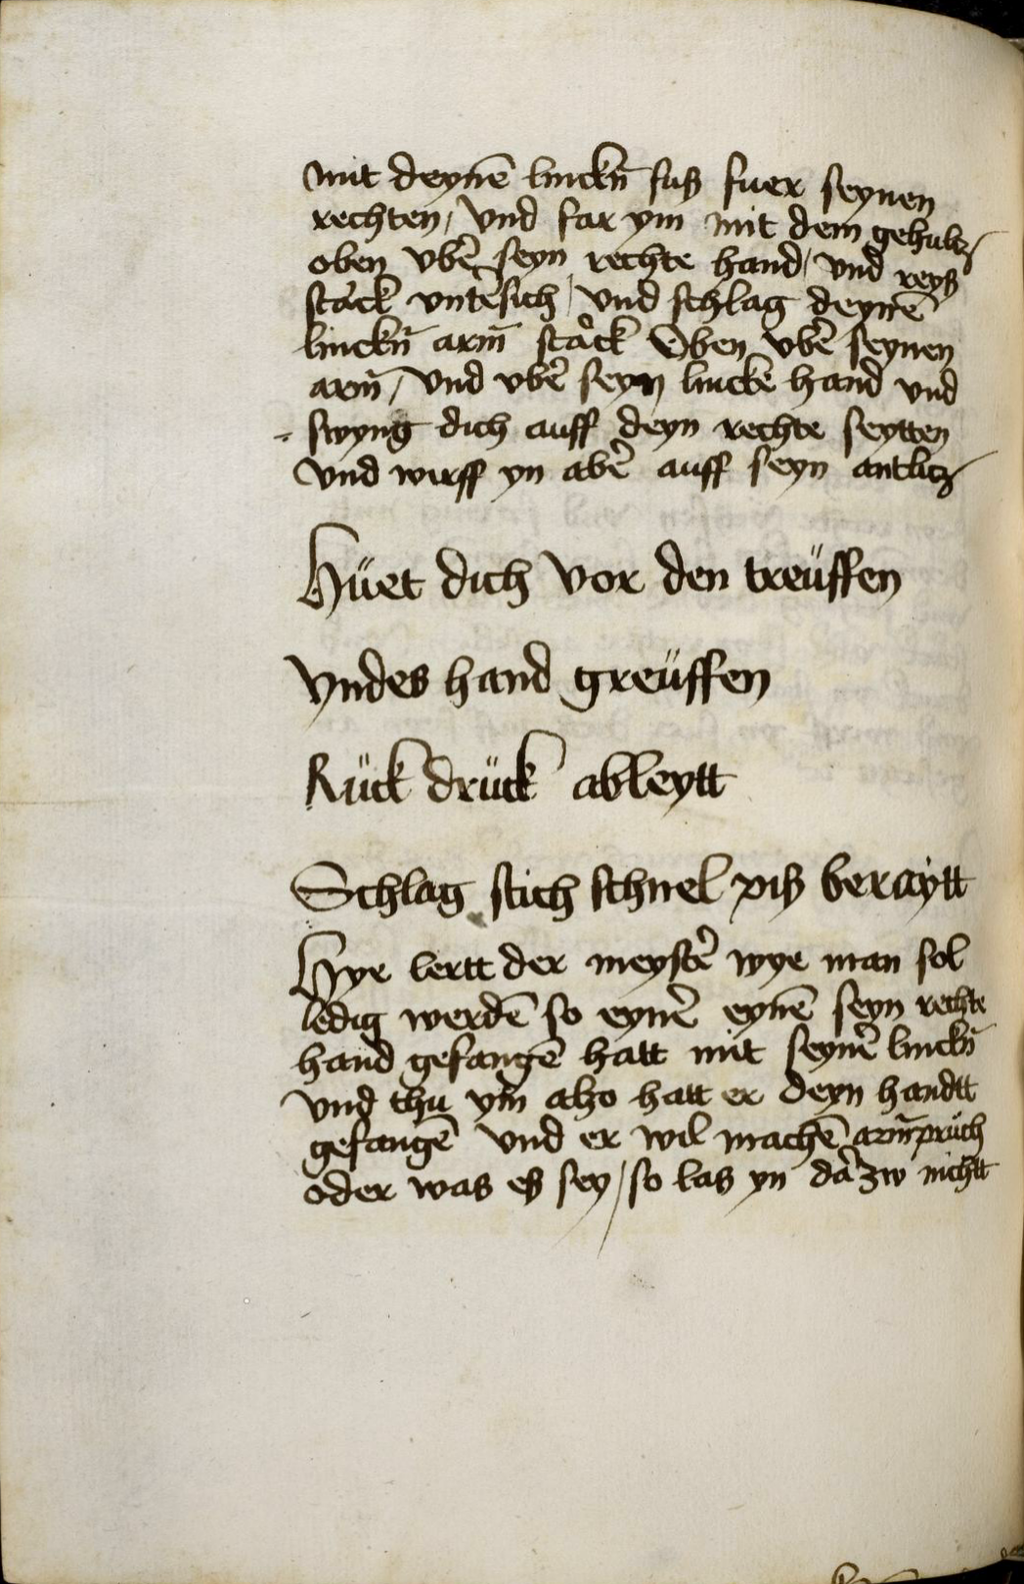 mit deynē linckn̄ fuß fuer seynen
rechten / vnd far ym mit dem gehultz /
oben vber̄ seyn rechte hand / vnd reyß
starck vnter̄sich / vnd schlag deynē
linckn̄ arm̄ starck Oben vber̄ seynen
arm̄ / vnd vber̄ seyn lincke hand vnd
swyng dich auff deyn rechte seytten
vnd wirff yn aber̄ auff seyn antlitz /
Hüet dich vor den treüffen
Vndes hand greüffen
Rück drück ableytt
Schlag stich schnel piß beraytt
Hye lertt der meyster̄ wye man sol
ledig werdē so eyner̄ eynē seyn rechte
hand gefangē hatt mit seyner̄ linckn̄
vnd thu ym̄ also hatt er deyn handtt
gefangē vnd er wil machē arm̄pruch
oder was eß sey / so las yn dar̄zw nichtt